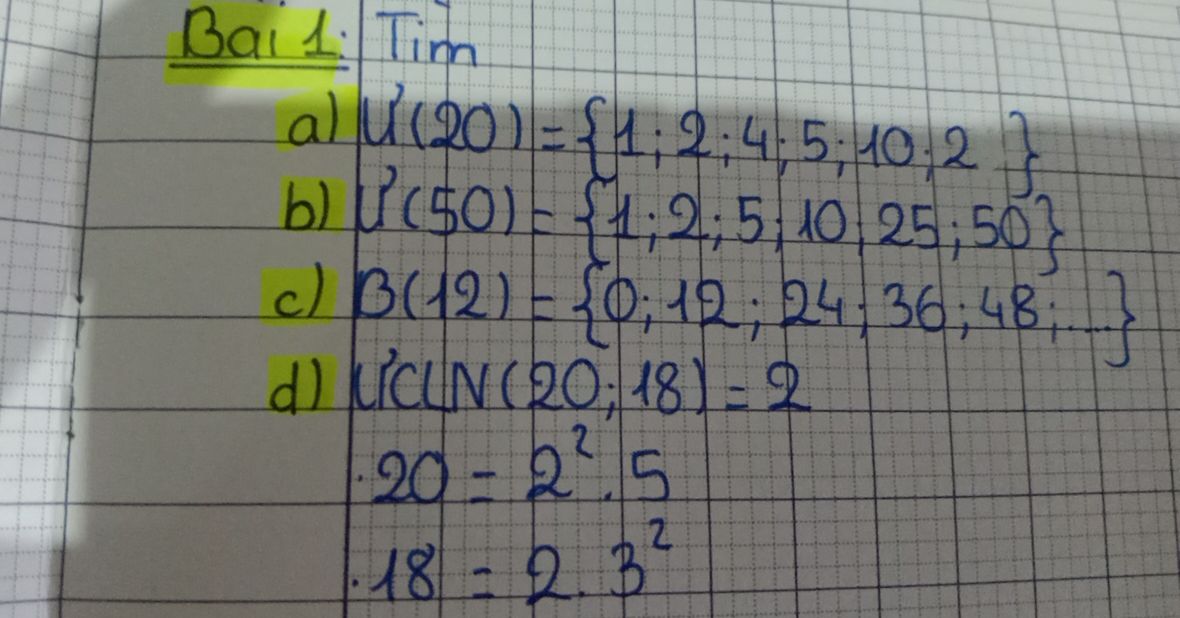 Bài 1: Tìm
a) Ư(20) = {1; 2; 4; 5; 10; 2 }
b) Ư(50) = {1; 2; 5; 10; 25; 50}
c) B(12) = {0; 12; 24; 36; 48; ....}
d) ƯCLN(20; 18) = 2
. 20 = 2² . 5
. 18 = 2 . 3²